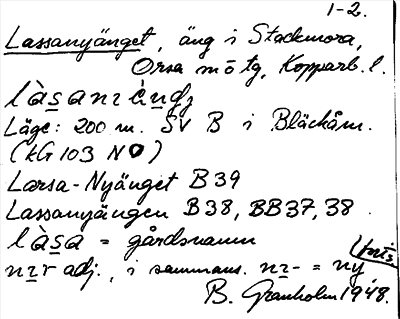 1-2.
Lassanyänget, äng i Stackmora,
Orsa sn o tg, Kopparb. l.
Läge: 200 m. SV B i Bläckåm.
(KG 103 NO)
Larsa-Nyänget B39
Lassanyängen B38, BB37, 38.
làsa = gårdsnamn
nɪr adj., i sammans. nɪ- = ny
B. Granholm 1948.